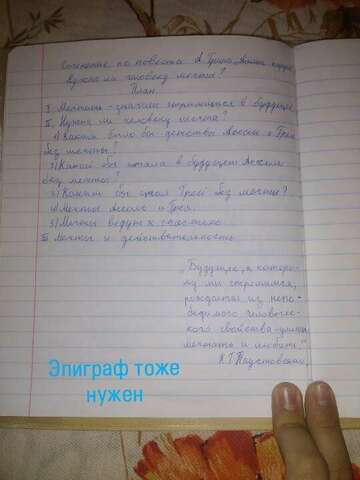 Сочинение по повести А. Грина „Алые паруса"
Нужна ли человеку мечта?
План.
I. Мечтать – значит стремиться в будущее.
II. Нужна ли человеку мечта?
1) Каким было бы детство Ассоль и Грея
без мечты?
2) Какой бы стала в будущем Ассоль
без мечты?
3) Каким бы стал Грей без мечты?
4) Мечты Ассоль и Грея.
5) Мечты ведут к счастью.
III Мечты и действительность.
„Будущее, к которо-
му мы стремимся,
рождается из непо-
бедимого человечес-
кого свойства – умен
мечтать и любить."
К. Г. Паустовский.
Эпиграф тоже
нужен